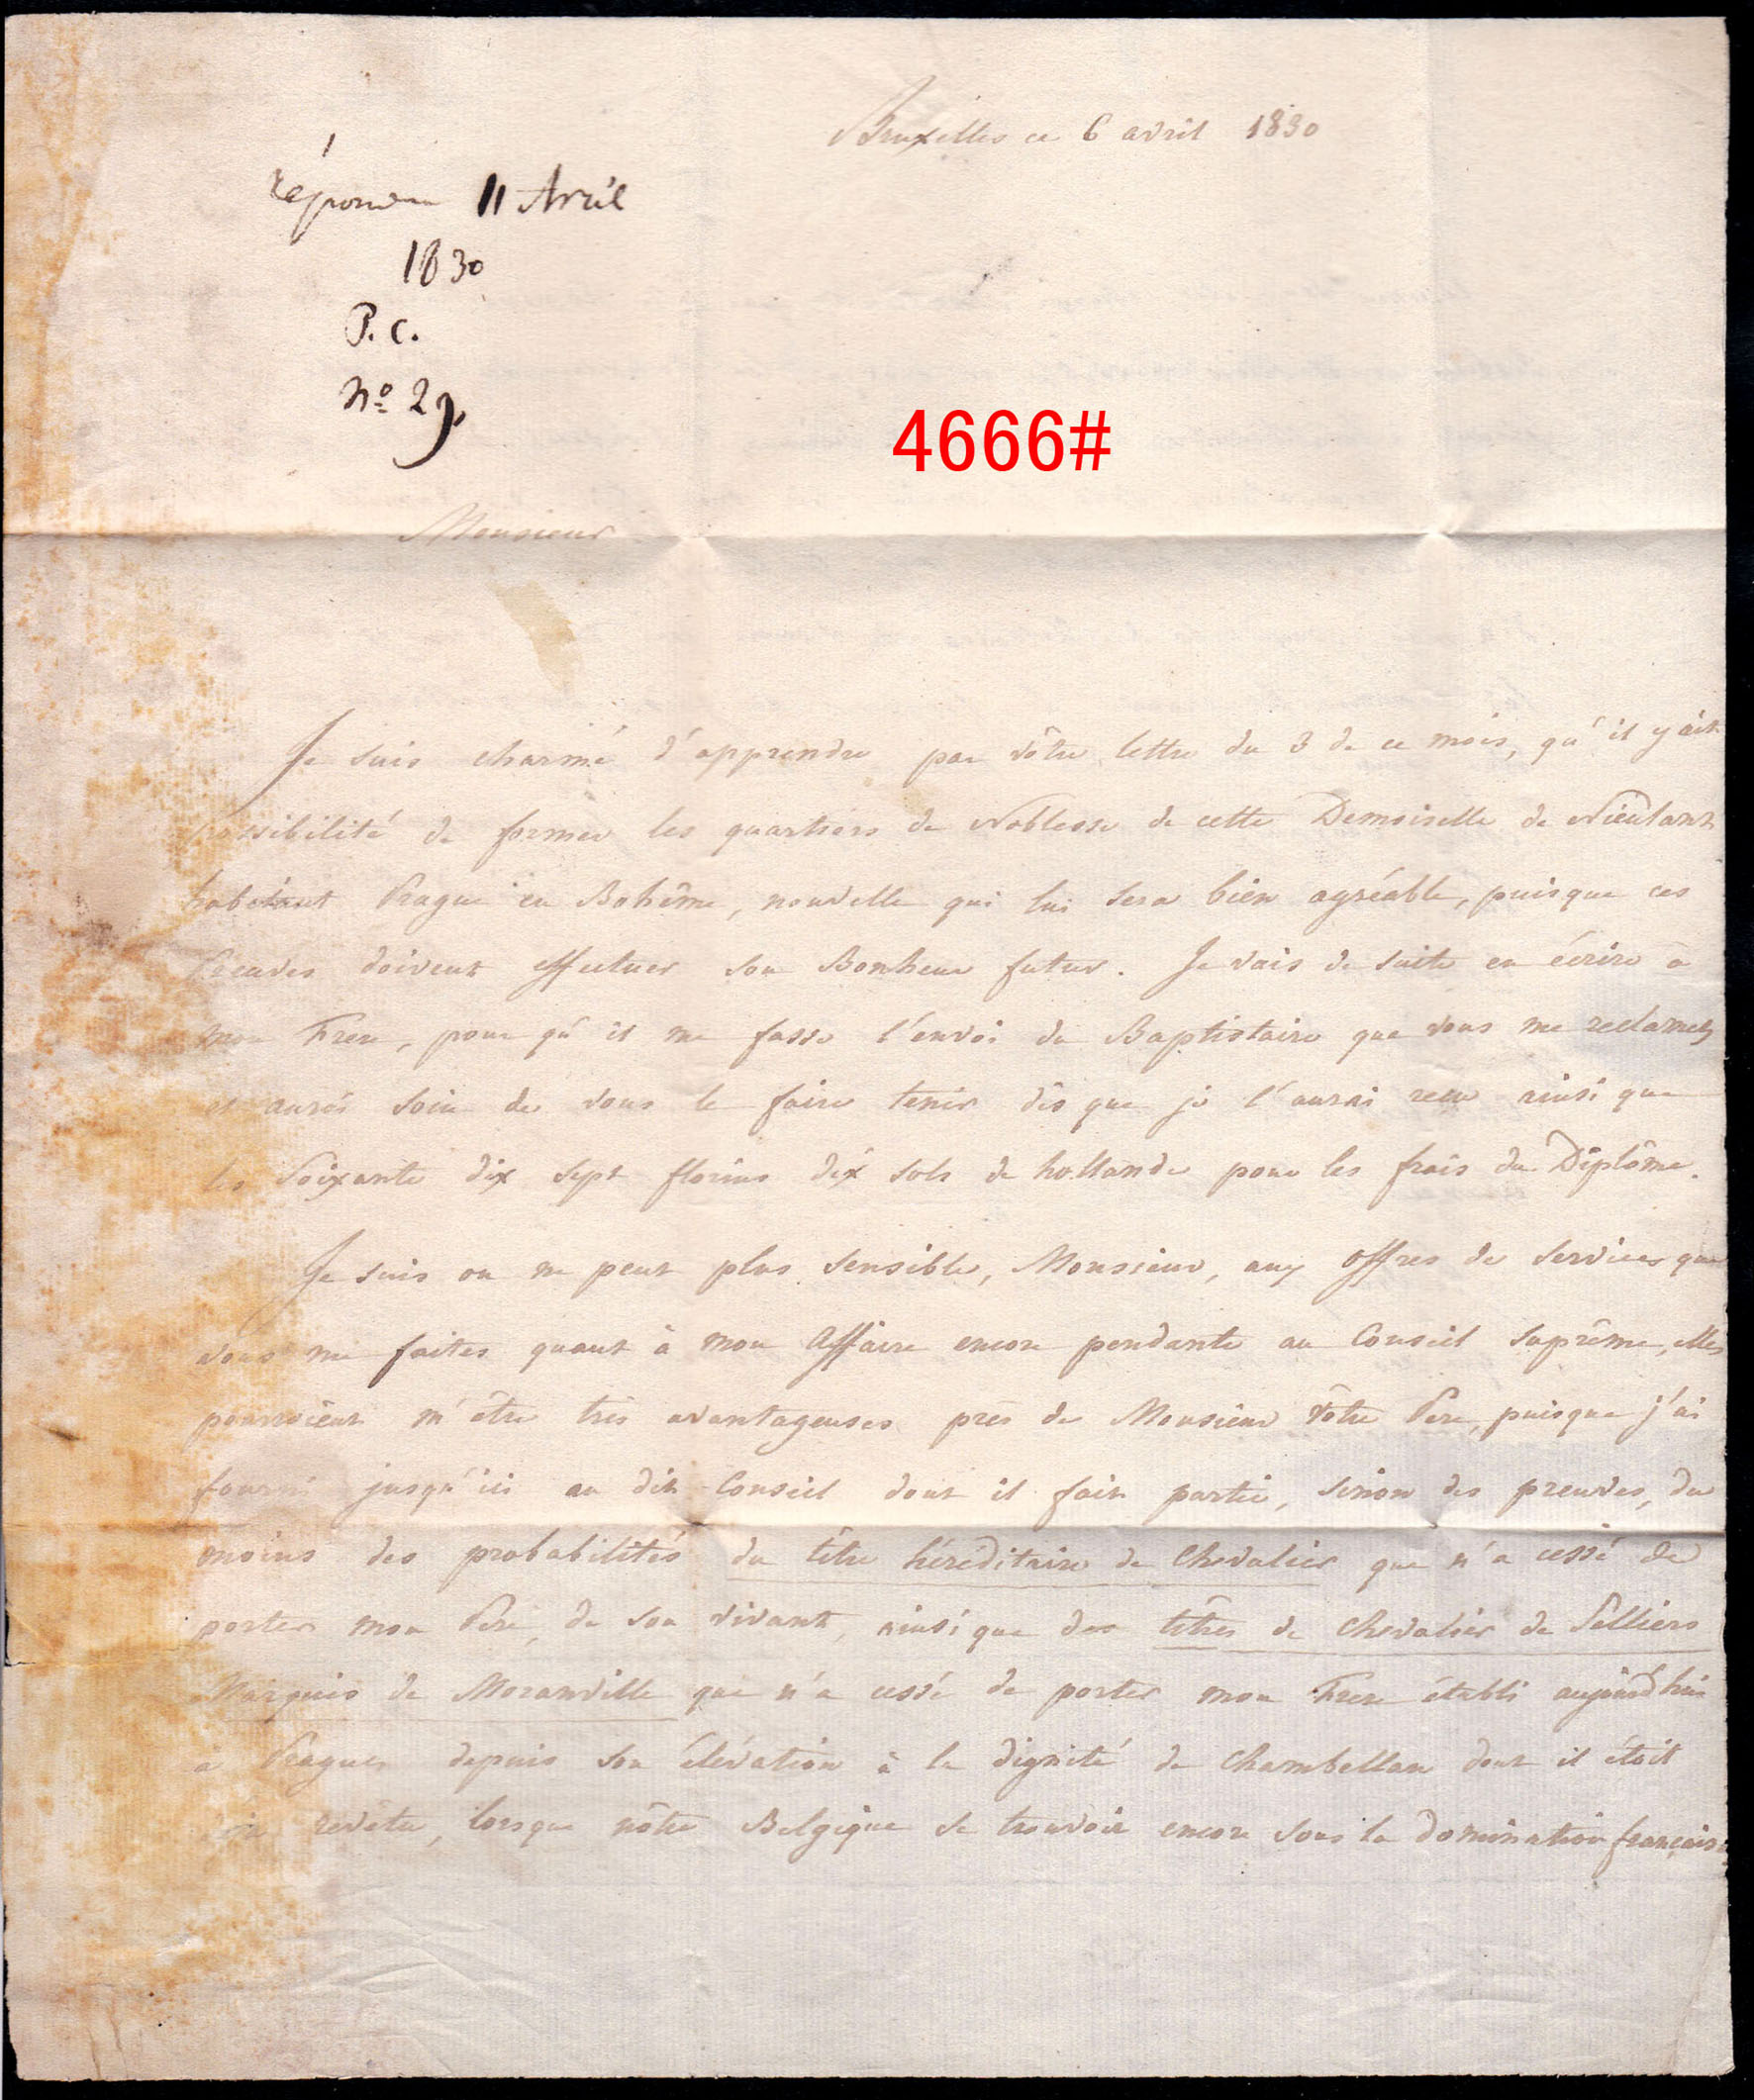 Bruxelles ce 6 avril 1830
11 Avril
1830
P. C.
Nº 29.
4666#
Monsieur
Je suis charmé d'apprendre par vôtre lettre du 3 de ce mois, qu'il y ait
possibilité de former les quartiers de Noblesse de cette Demoiselle de Nieulant
habitant Prague en Bohême, nouvelle qui lui sera bien agréable, puisque ces
doivent effectuer son Bonheur futur. Je vais de suite en écrire à
mon Frere, pour qu'il me fasse l'envoi du Baptistaire que vous me reclamez
et aurés soin de vous le faire tenir dès que je l'aurai recu ainsi que
les Soixante dix sept florins dix sols de hollande pour les frais du Diplôme.
Je suis on ne peut plus sensible, Monsieur, aux offres de services que
vous me faites quant à mon Affaire encore pendante au Conseil Suprême, elles
pourroient m'être très avantageuses près de Monsieur Vôtre Pere, puisque j'ai
fourni jusqu'ici au dit Conseil dont il fait partie, sinon des preuves, du
moins des probabilités du titre héréditaire de Chevalier que n'a cessé de
porter mon Pere, de son vivant, ainsi que des titres de Chevalier de Selliers
Marquis de Moranville que n'a cessé de porter mon Frere établi aujourd'hui
à Prague, depuis son élévation à la dignité de Chambellan dont il étoit
revetu, lorsque nôtre Belgique se trouvoit encore sous la domination française